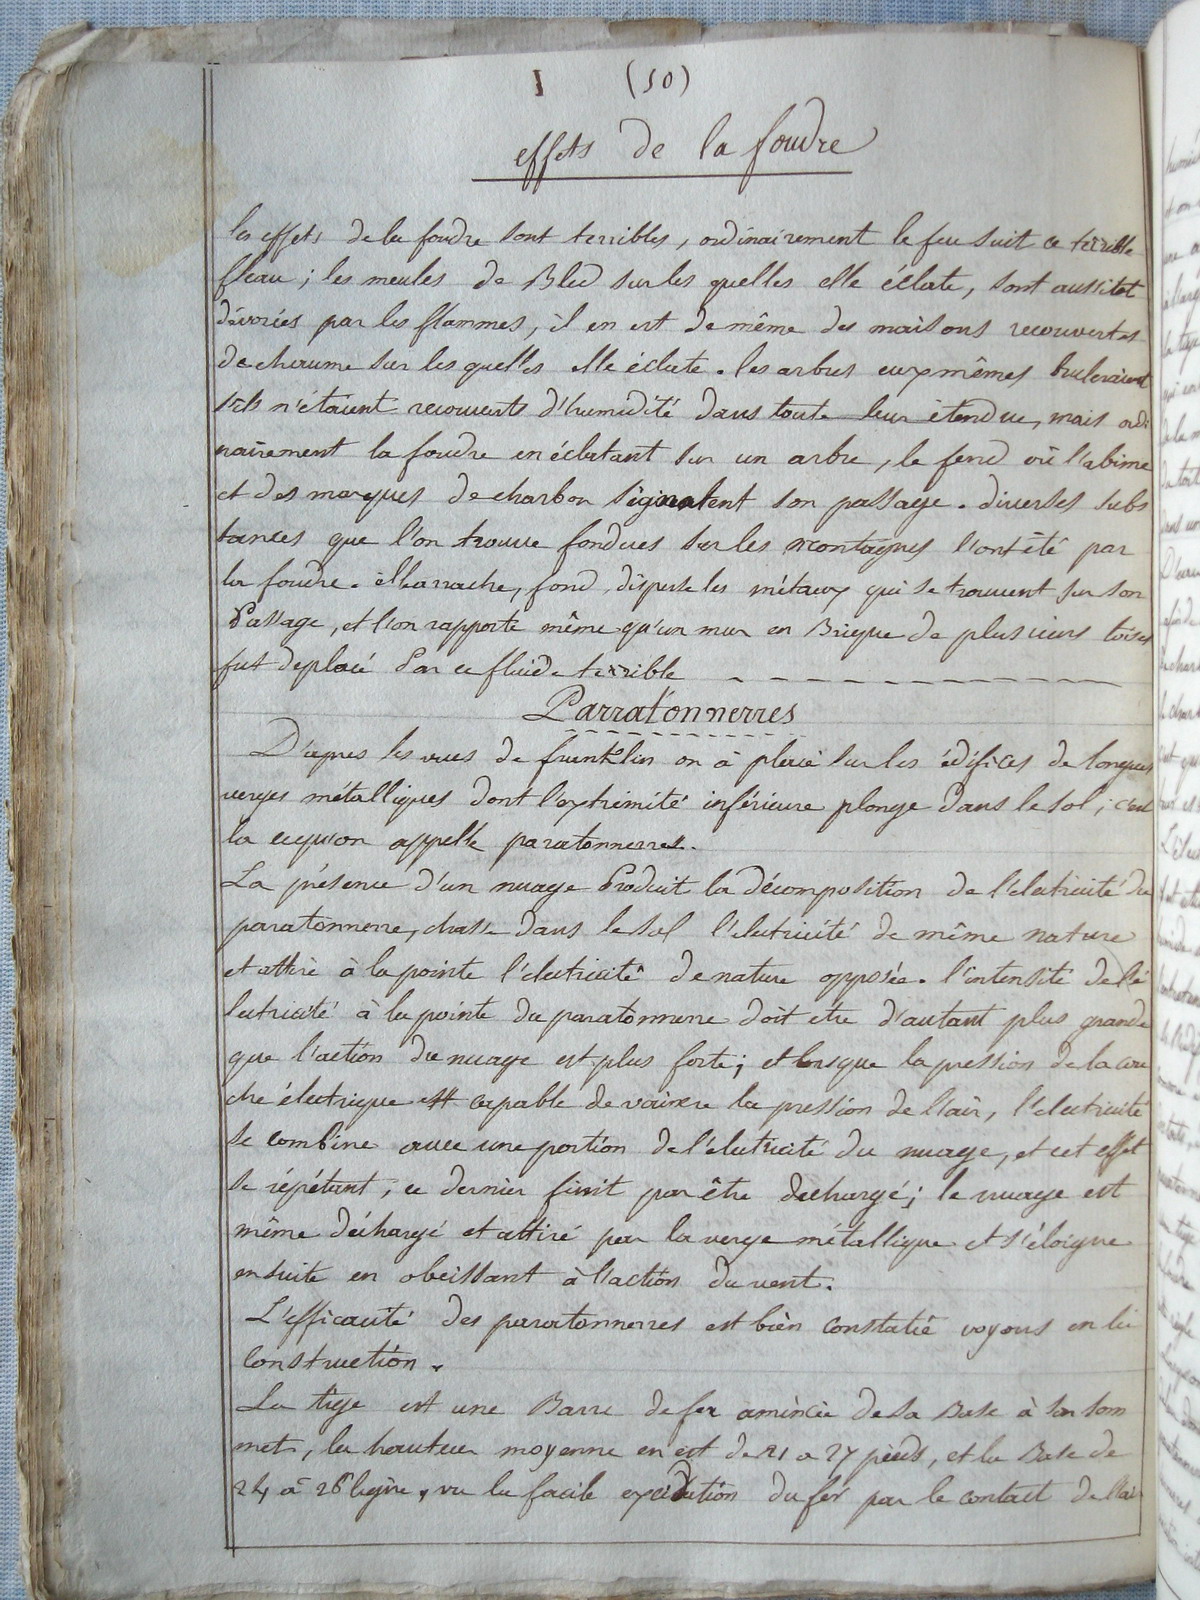 I (50)
effets de la foudre
les effets de la foudre sont terribles, ordinairement le feu suit ce terrible
fleau ; les meules de Bled sur les quelles elle éclate, sont aussitot
dévorées par les flammes, il en est de même des maisons recouvertes
de chaume sur les quelles elle éclate. les arbres eux mêmes bruleraient
s'ils n'étaient recouverts d'humidité dans toute leur étendue, mais ordi
nairement la foudre en éclatant sur un arbre, le fend où l'abime
et des marques de charbon signalent son passage. diverses subs
tances que l'on trouve fondues sur les montagnes l'ont été par
la foudre. elle arrache, fond, disperse les métaux qui se trouvent sur son
Passage, et l'on rapporte même qu'un mur en Brique de plusieurs toises
fut deplacé Par ce fluide terrible
Parratonnerres
D'apres les vues de franklin on à placé sur les édifices de longues
verges métalliques dont l'extrimité inférieure plonge dans le sol ; c'est
la cequ'on appelle paratonnerres.
La présence d'un nuage Produit la décomposition de l'électricité du
paratonnerre, chasse dans le sol l'électricité de même nature
et attire à la pointe l'électricité de nature opposée. l'intensité de l'é
lectricité à la pointe du paratonnerre doit etre d'autant plus grande
que l'action du nuage est plus forte ; et lorsque la pression de la cou
che électrique est capable de vaincre la pression de l'air, l'électricité
se combine avec une portion de l'électricité du nuage, et cet effet
se répétant, ce dernier finit par être dechargé ; le nuage est
même déchargé et attiré par la verge métallique et s'éloigne
ensuite en obeissant à l'action du vent.
L'efficacité des paratonnerres est bien constatée voyons en la
construction.
La tige est une Barre de fer amincie de sa Base à son som
met, la hauteur moyenne en est de 21 a 27 pieds, et la Base de
24 à 26 ligne, vu la facile exidation du fer par le contact de l'air